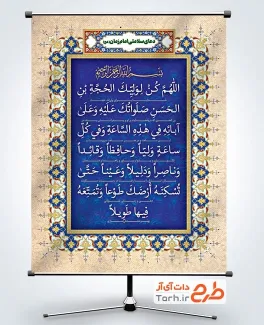 دعای سلامتی امام زمان (عج)
بسم الله الرحمن الرحیم
اللّٰهُمَّ كُنْ لِوَلِيِّكَ الْحُجَّةِ بْنِ
الْحَسَنِ صَلَواتُكَ عَلَيْهِ وَعَلىٰ
آبائِهِ فِي هٰذِهِ السَّاعَةِ وَفِي كُلِّ
ساعَةٍ وَلِيّاً وَحافِظاً وَقائِداً
وَناصِراً وَدَلِيلاً وَعَيْناً حَتّىٰ
تُسْكِنَهُ أَرْضَكَ طَوْعاً وَتُمَتِّعَهُ
فِيها طَوِيلاً
طرح دات آی آر
Tarh.ir